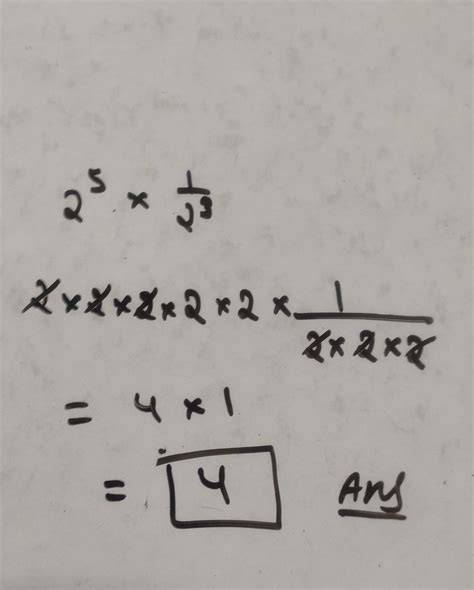 2⁵ × 1/2³
2 × 2 × 2 × 2 × 2 × 1/(2 × 2 × 2)
= 4 × 1
= 4 Ans